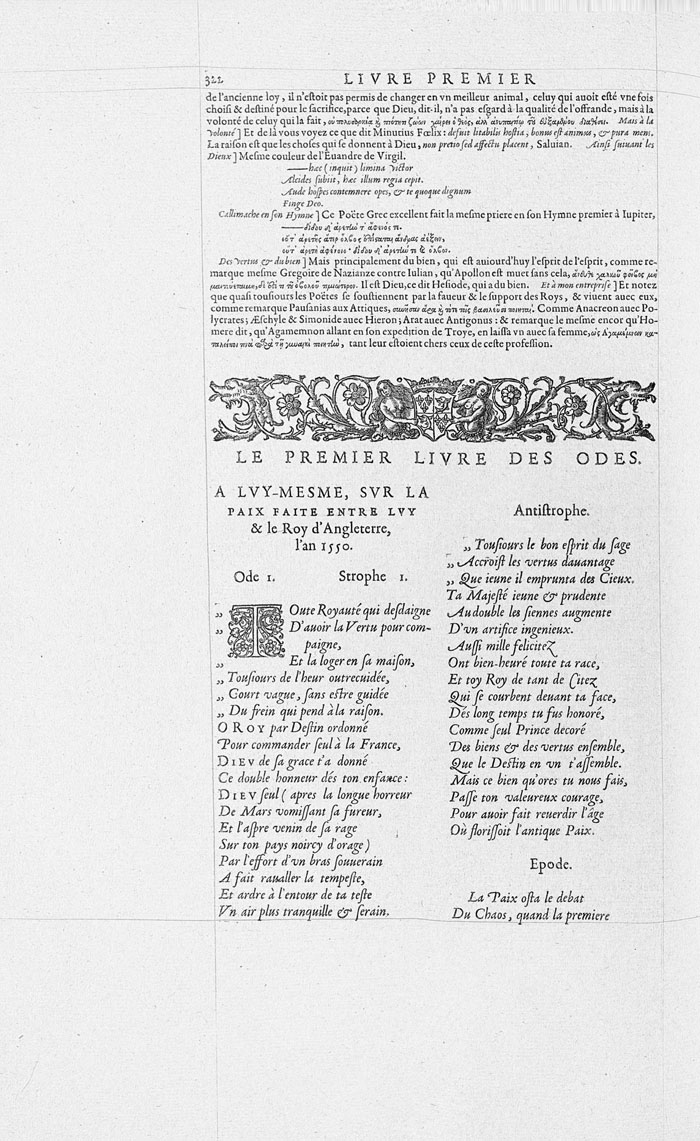 322 LIVRE PREMIER
de l'ancienne loy, il n'estoit pas permis de changer en vn meilleur animal, celuy qui auoit esté vne fois
choisi & destiné pour le sacrifice, parce que Dieu, dit-il, n'a pas esgard à la qualité de l'offrande, mais à la
volonté de celuy qui la fait, Mais à la
volonté] Et de là vous voyez ce que dit Minutius Fœlix: defuit litabilis hostia, bonus est animus, & pura mens.
La raison est que les choses qui se donnent à Dieu, non pretio sed affectu placent, Saluian. Ainsi suiuant les
Dieux] Mesme couleur de l'Euandre de Virgil.
—hæc (inquit) limina victor
Alcides subiit, hæc illum regia cepit.
Aude hospes contemnere opes, & te quoque dignum
Finge Deo.
Callimache en son Hymne] Ce Poëte Grec excellent fait la mesme priere en son Hymne premier à Iupiter,
Des vertus & du bien] Mais principalement du bien, qui est auiourd'huy l'esprit de l'esprit, comme re-
marque mesme Gregoire de Nazianze contre Iulian, qu'Apollon est muet sans cela,
Il est Dieu, ce dit Hesiode, qui a du bien. Et à mon entreprise] Et notez
que quasi tousiours les Poëtes se soustiennent par la faueur & le support des Roys, & viuent auec eux,
comme remarque Pausanias aux Attiques, Comme Anacreon auec Po-
lycrates; Æschyle & Simonide auec Hieron; Arat auec Antigonus: & remarque le mesme encor qu'Ho-
mere dit, qu'Agamemnon allant en son expedition de Troye, en laissa vn auec sa femme,
tant leur estoient chers ceux de ceste profession.
LE PREMIER LIVRE DES ODES.
A LVY-MESME, SVR LA
PAIX FAITE ENTRE LVY
& le Roy d'Angleterre,
l'an 1550.
Ode 1. Strophe 1.
„ Toute Royauté qui desdaigne
„ D'auoir la Vertu pour com-
paigne,
„ Et la loger en sa maison,
„ Tousiours de l'heur outrecuidée,
„ Court vague, sans estre guidée
„ Du frein qui pend à la raison.
O ROY par Destin ordonné
Pour commander seul à la France,
DIEV de sa grace t'a donné
Ce double honneur dés ton enfance:
DIEV seul (apres la longue horreur
De Mars vomissant sa fureur,
Et l'aspre venin de sa rage
Sur ton pays noircy d'orage)
Par l'effort d'vn bras souuerain
A fait raualler la tempeste,
Et ardre à l'entour de ta teste
Vn air plus tranquille & serain.
Antistrophe.
„ Tousiours le bon esprit du sage
„ Accroist les vertus dauantage
„ Que ieune il emprunta des Cieux.
Ta Majesté ieune & prudente
Au double les siennes augmente
D'vn artifice ingenieux.
Aussi mille felicitez
Ont bien-heuré toute ta race,
Et toy Roy de tant de Citez
Qui se courbent deuant ta face,
Dés long temps tu fus honoré,
Comme seul Prince decoré
Des biens & des vertus ensemble,
Que le Destin en vn t'assemble.
Mais ce bien qu'ores tu nous fais,
Passe ton valeureux courage,
Pour auoir fait reuerdir l'âge
Où florissoit l'antique Paix.
Epode.
La Paix osta le debat
Du Chaos, quand la premiere